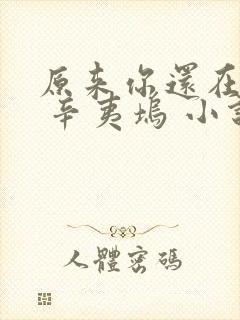 原来你還在
辛夷塢 小
人體密碼